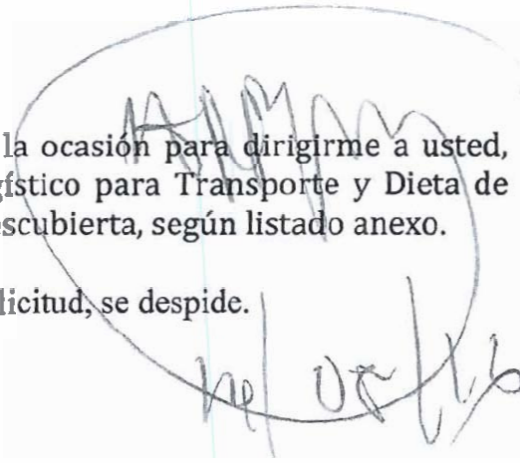 la ocasión para dirigirme a usted,
gístico para Transporte y Dieta de
scubierta, según listado anexo.
licitud, se despide.